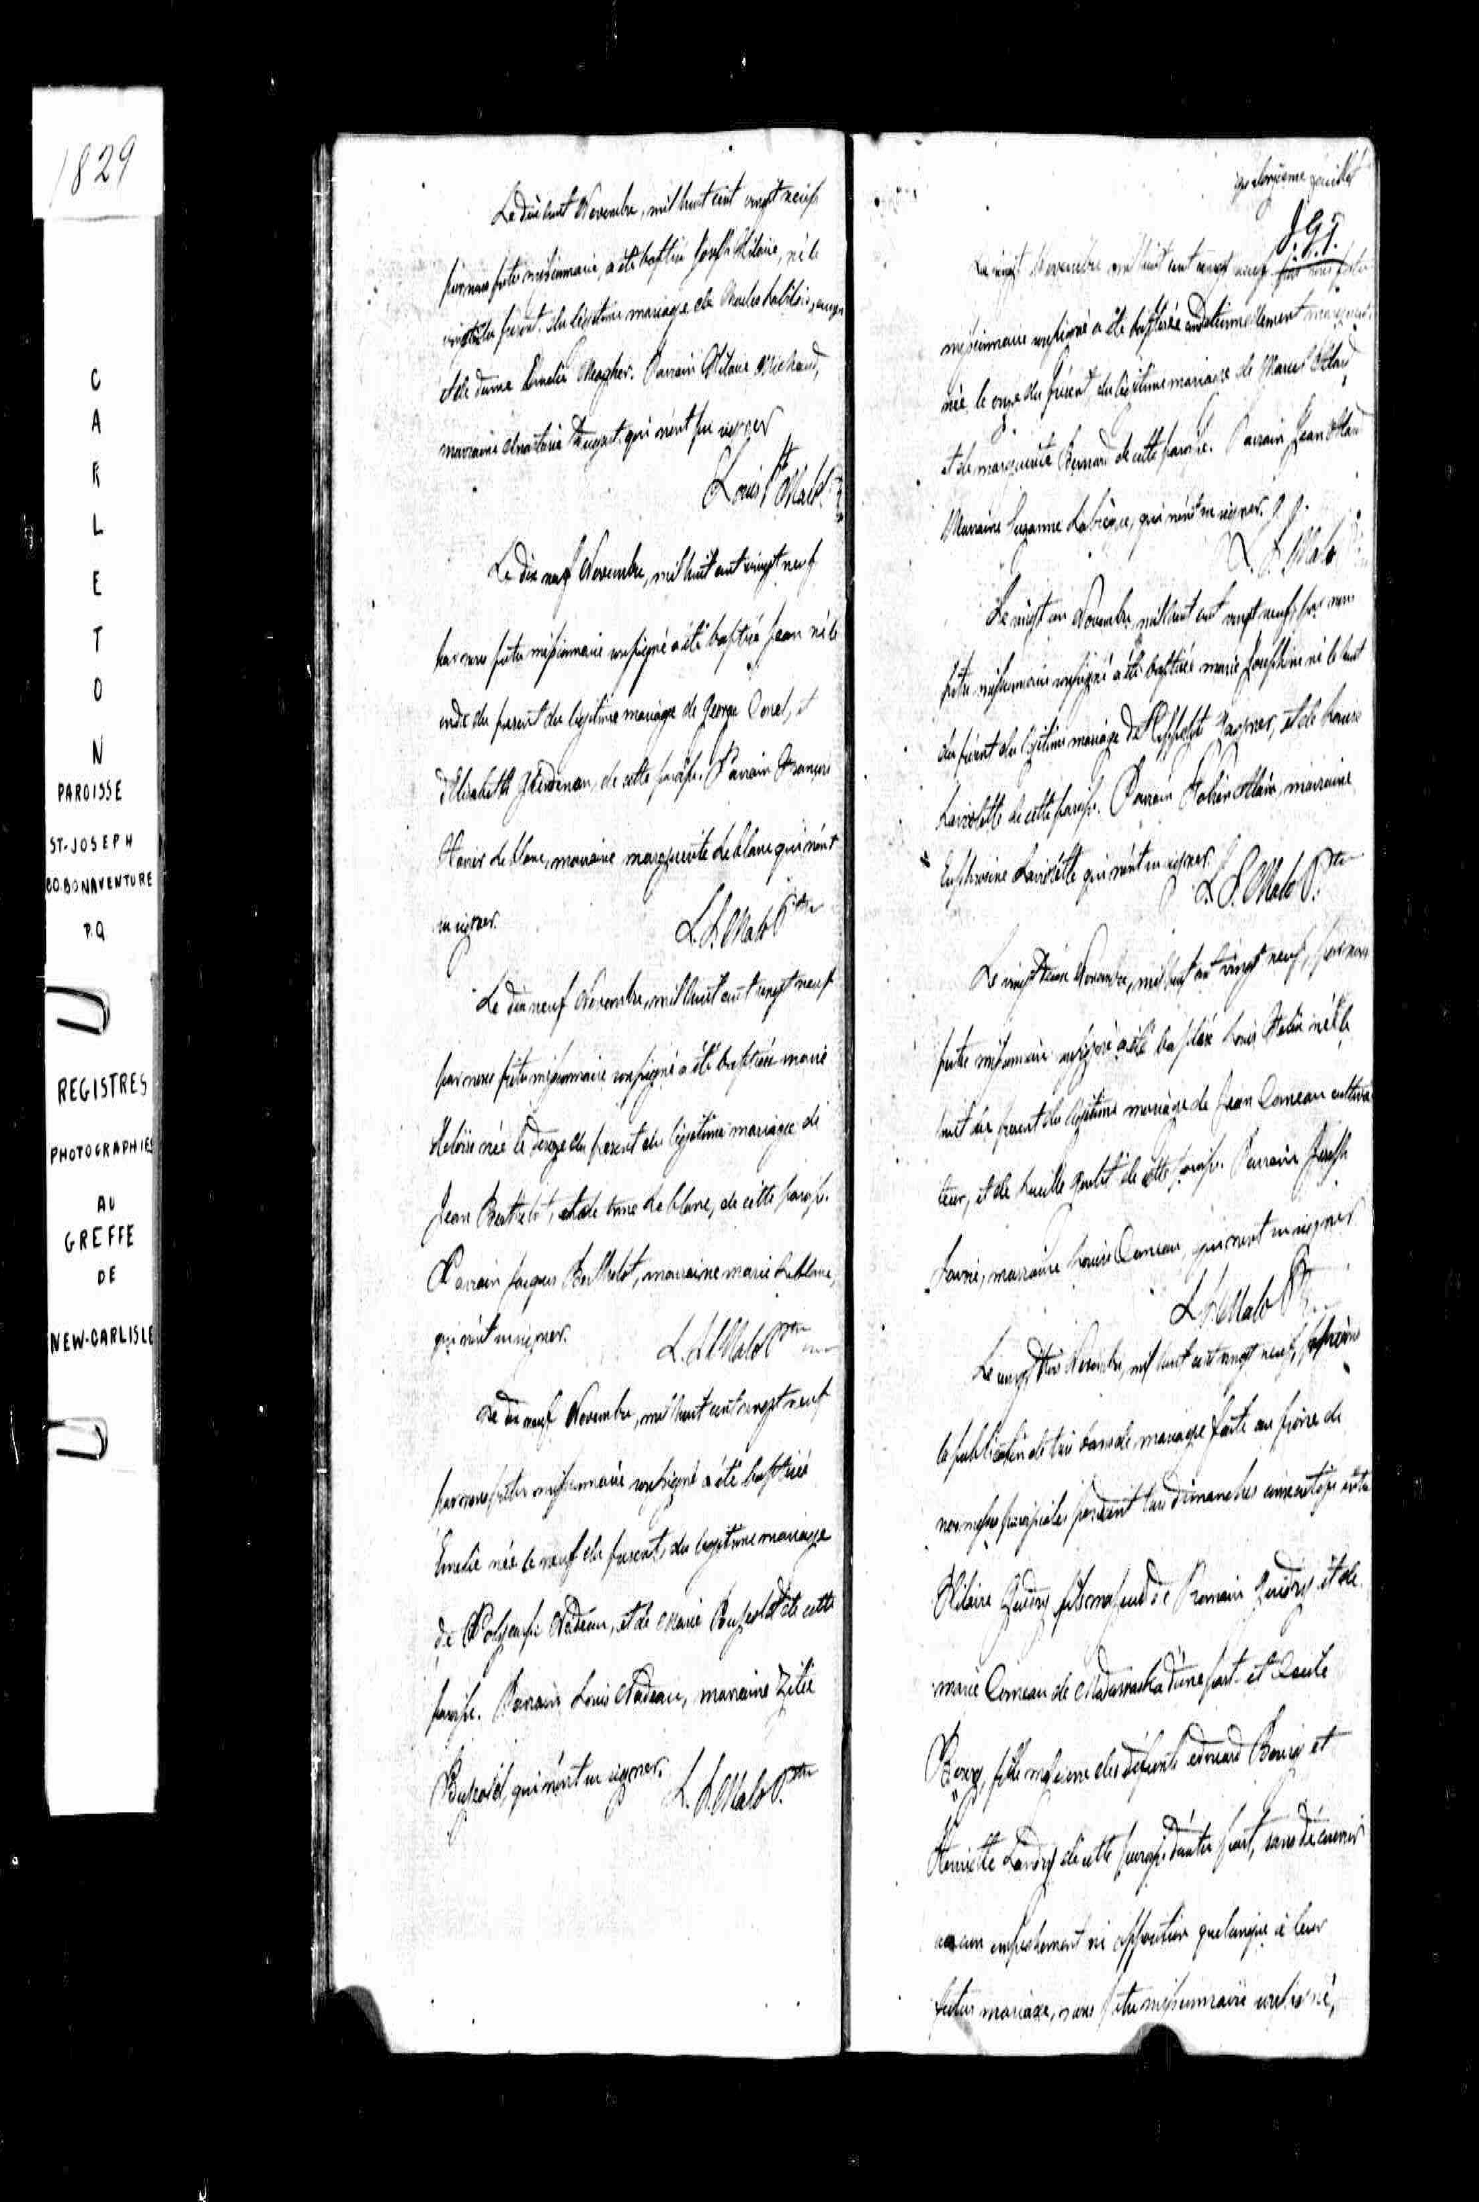 1829
CARLETON
PAROISSE
ST-JOSEPH
CO. BONAVENTURE
P.Q
REGISTRES
PHOTOGRAPHIES
AU
GREFFE
DE
NEW-CARLISLE
Le dix huit Novembre, mil huit cent vingt neuf
par nous ptre missionnaire, a été baptisé Joseph Hilaire, né le
du présent du légitime mariage de Charles
et de dame Emelie Meagher. Parrain Hilaire Michaud,
marraine qui n'ont pu signer
Louis S. Malo
Le dix neuf Novembre, mil huit cent vingt neuf
par nous ptre missionnaire soussigné a été baptisé Jean né le
onze du présent du légitime mariage de George et
d'Elisabeth de cette paroisse. Parrain François
Xavier LeBlanc, marraine marguerite LeBlanc qui n'ont
su signer.
L. S. Malo Ptre
Le dix neuf Novembre, mil huit cent vingt neuf
par nous ptre missionnaire soussigné a été baptisée marie
née le du présent du légitime mariage de
Jean Berthelot, et de Anne LeBlanc, de cette paroisse.
Parrain Jacques Berthelot, marraine marie LeBlanc,
qui n'ont su signer.
L. S. Malo Ptre
Le dix neuf Novembre, mil huit cent vingt neuf
par nous ptre missionnaire soussigné a été baptisée
Emelie née le neuf du présent, du légitime mariage
de Polycarpe Nadeau, et de Marie de cette
paroisse. Parrain Louis Nadeau, marraine Zélie
qui n'ont su signer.
L. S. Malo Ptre
quatorzieme feuillet
J. G. T.
Le vingt Novembre mil huit cent vingt neuf par nous ptre
missionnaire soussigné a été baptisée
née le onze du présent, du légitime mariage de Marcel Allard
et de marguerite Bernard de cette paroisse. Parrain Jean Allard
Marraine Suzanne qui n'ont su signer.
L. S. Malo
Le vingt un Novembre, mil huit cent vingt neuf, par nous
ptre missionnaire soussigné a été baptisée marie Josephine né le huit
du présent du légitime mariage d'Hippolyte et de Louise
Lariolette de cette paroisse. Parrain Fabien Allain, marraine
Euphrosine Lariolette qui n'ont su signer.
L. S. Malo Ptre
Le vingt Novembre, mil huit cent vingt neuf, par nous
ptre missionnaire soussigné a été baptisé Louis né le
huit du présent du légitime mariage de Jean Comeau cultiva
teur, et de Lucille de cette paroisse. Parrain Joseph
marraine Louise Comeau, qui n'ont su signer
L. S. Malo Ptre
Le vingt trois Novembre, mil huit cent vingt neuf, après
la publication de trois bans de mariage faite au prône de
nos messes paroissiales pendant trois dimanches consécutifs entre
Hilaire Guidry fils majeur de Romain Guidry et de
marie Comeau de Madawaska d'une part et Cecile
Bourg, fille majeure des défunts edouard Bourg et
Henriette Landry de cette paroisse d'autre part, sans découvrir
aucun empêchement ni opposition quelconque à leur
futur mariage, nous ptre missionnaire soussigné,